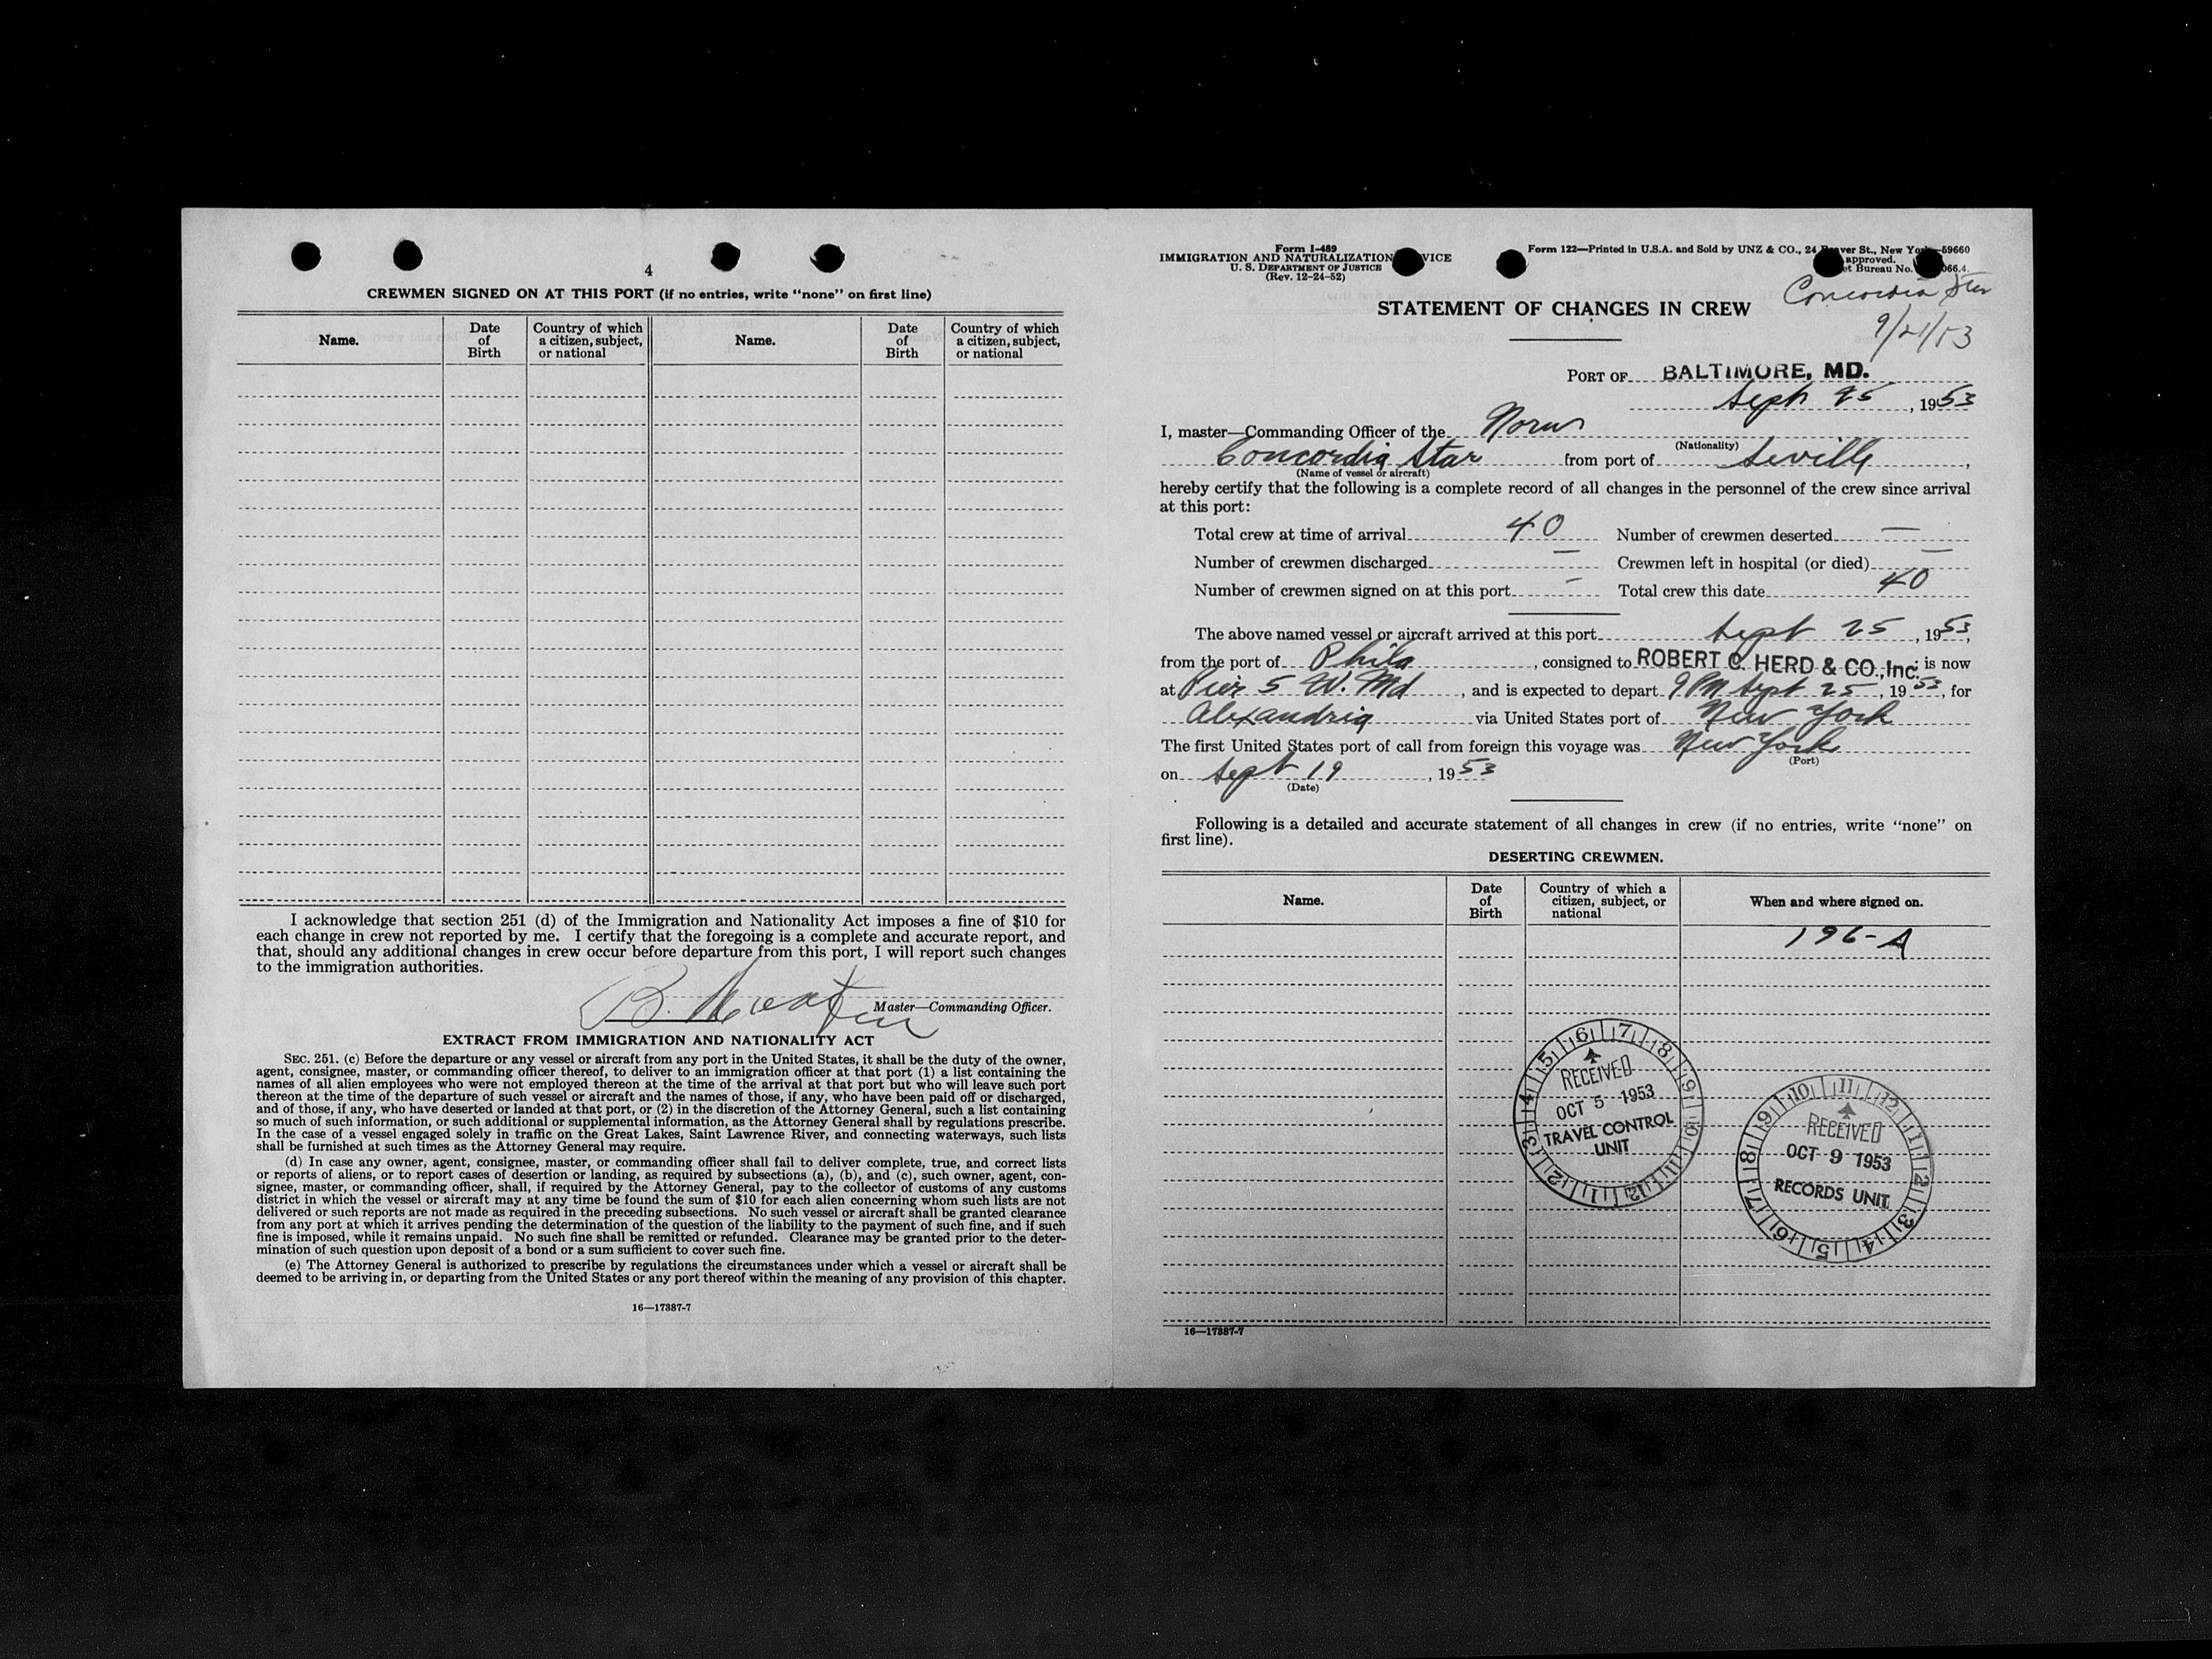 4
CREWMEN SIGNED ON AT THIS PORT (if no entries, write “none” on first line)
Name. Date of Birth Country of which a citizen, subject, or national Name. Date of Birth Country of which a citizen, subject, or national
I acknowledge that section 251 (d) of the Immigration and Nationality Act imposes a fine of $10 for
each change in crew not reported by me. I certify that the foregoing is a complete and accurate report, and
that, should any additional changes in crew occur before departure from this port, I will report such changes
to the immigration authorities.
B.
Master—Commanding Officer.
EXTRACT FROM IMMIGRATION AND NATIONALITY ACT
SEC. 251. (c) Before the departure or any vessel or aircraft from any port in the United States, it shall be the duty of the owner,
agent, consignee, master, or commanding officer thereof, to deliver to an immigration officer at that port (1) a list containing the
names of all alien employees who were not employed thereon at the time of the arrival at that port but who will leave such port
thereon at the time of the departure of such vessel or aircraft and the names of those, if any, who have been paid off or discharged,
and of those, if any, who have deserted or landed at that port, or (2) in the discretion of the Attorney General, such a list containing
so much of such information, or such additional or supplemental information, as the Attorney General shall by regulations prescribe.
In the case of a vessel engaged solely in traffic on the Great Lakes, Saint Lawrence River, and connecting waterways, such lists
shall be furnished at such times as the Attorney General may require.
(d) In case any owner, agent, consignee, master, or commanding officer shall fail to deliver complete, true, and correct lists
or reports of aliens, or to report cases of desertion or landing, as required by subsections (a), (b), and (c), such owner, agent, con-
signee, master, or commanding officer, shall, if required by the Attorney General, pay to the collector of customs of any customs
district in which the vessel or aircraft may at any time be found the sum of $10 for each alien concerning whom such lists are not
delivered or such reports are not made as required in the preceding subsections. No such vessel or aircraft shall be granted clearance
from any port at which it arrives pending the determination of the question of the liability to the payment of such fine, and if such
fine is imposed, while it remains unpaid. No such fine shall be remitted or refunded. Clearance may be granted prior to the deter-
mination of such question upon deposit of a bond or a sum sufficient to cover such fine.
(e) The Attorney General is authorized to prescribe by regulations the circumstances under which a vessel or aircraft shall be
deemed to be arriving in, or departing from the United States or any port thereof within the meaning of any provision of this chapter.
16—17387-7
Form I-489
IMMIGRATION AND NATURALIZATION VICE
U. S. DEPARTMENT OF JUSTICE
(Rev. 12-24-52)
Form 122—Printed in U.S.A. and Sold by UNZ & CO., 24 St., New 59660
approved.
Bureau No. 066.4.
Concordia Star
9/21/53
STATEMENT OF CHANGES IN CREW
PORT OF BALTIMORE, MD.
Sept 25, 1953
I, master—Commanding Officer of the Norw
(Nationality)
Concordia Star from port of Seville,
(Name of vessel or aircraft)
hereby certify that the following is a complete record of all changes in the personnel of the crew since arrival
at this port:
Total crew at time of arrival 40 Number of crewmen deserted —
Number of crewmen discharged — Crewmen left in hospital (or died) —
Number of crewmen signed on at this port - Total crew this date 40
The above named vessel or aircraft arrived at this port Sept 25, 1953,
from the port of Phila, consigned to ROBERT C. HERD & CO., Inc. is now
at Pier 5 W. Md, and is expected to depart 9 PM Sept 25, 1953, for
Alexandria via United States port of New York
The first United States port of call from foreign this voyage was New York
(Port)
on Sept 19, 1953
(Date)
Following is a detailed and accurate statement of all changes in crew (if no entries, write “none” on
first line).
DESERTING CREWMEN.
Name. Date of Birth Country of which a citizen, subject, or national When and where signed on.
196-A
RECEIVED
OCT 5 1953
TRAVEL CONTROL
UNIT
RECEIVED
OCT 9 1953
RECORDS UNIT
16—17387-7